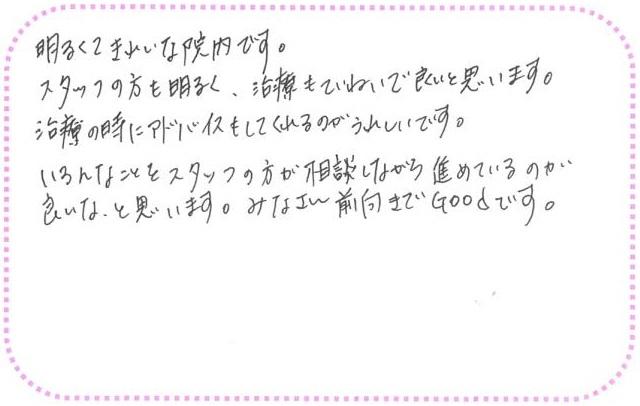 明るくてきれいな院内です。
スタッフの方も明るく、治療もていねいで良いと思います。
治療の時にアドバイスもしてくれるのがうれしいです。
いろんなことをスタッフの方が相談しながら進めているのが
良いな、と思います。みなさん前向きでGoodです。